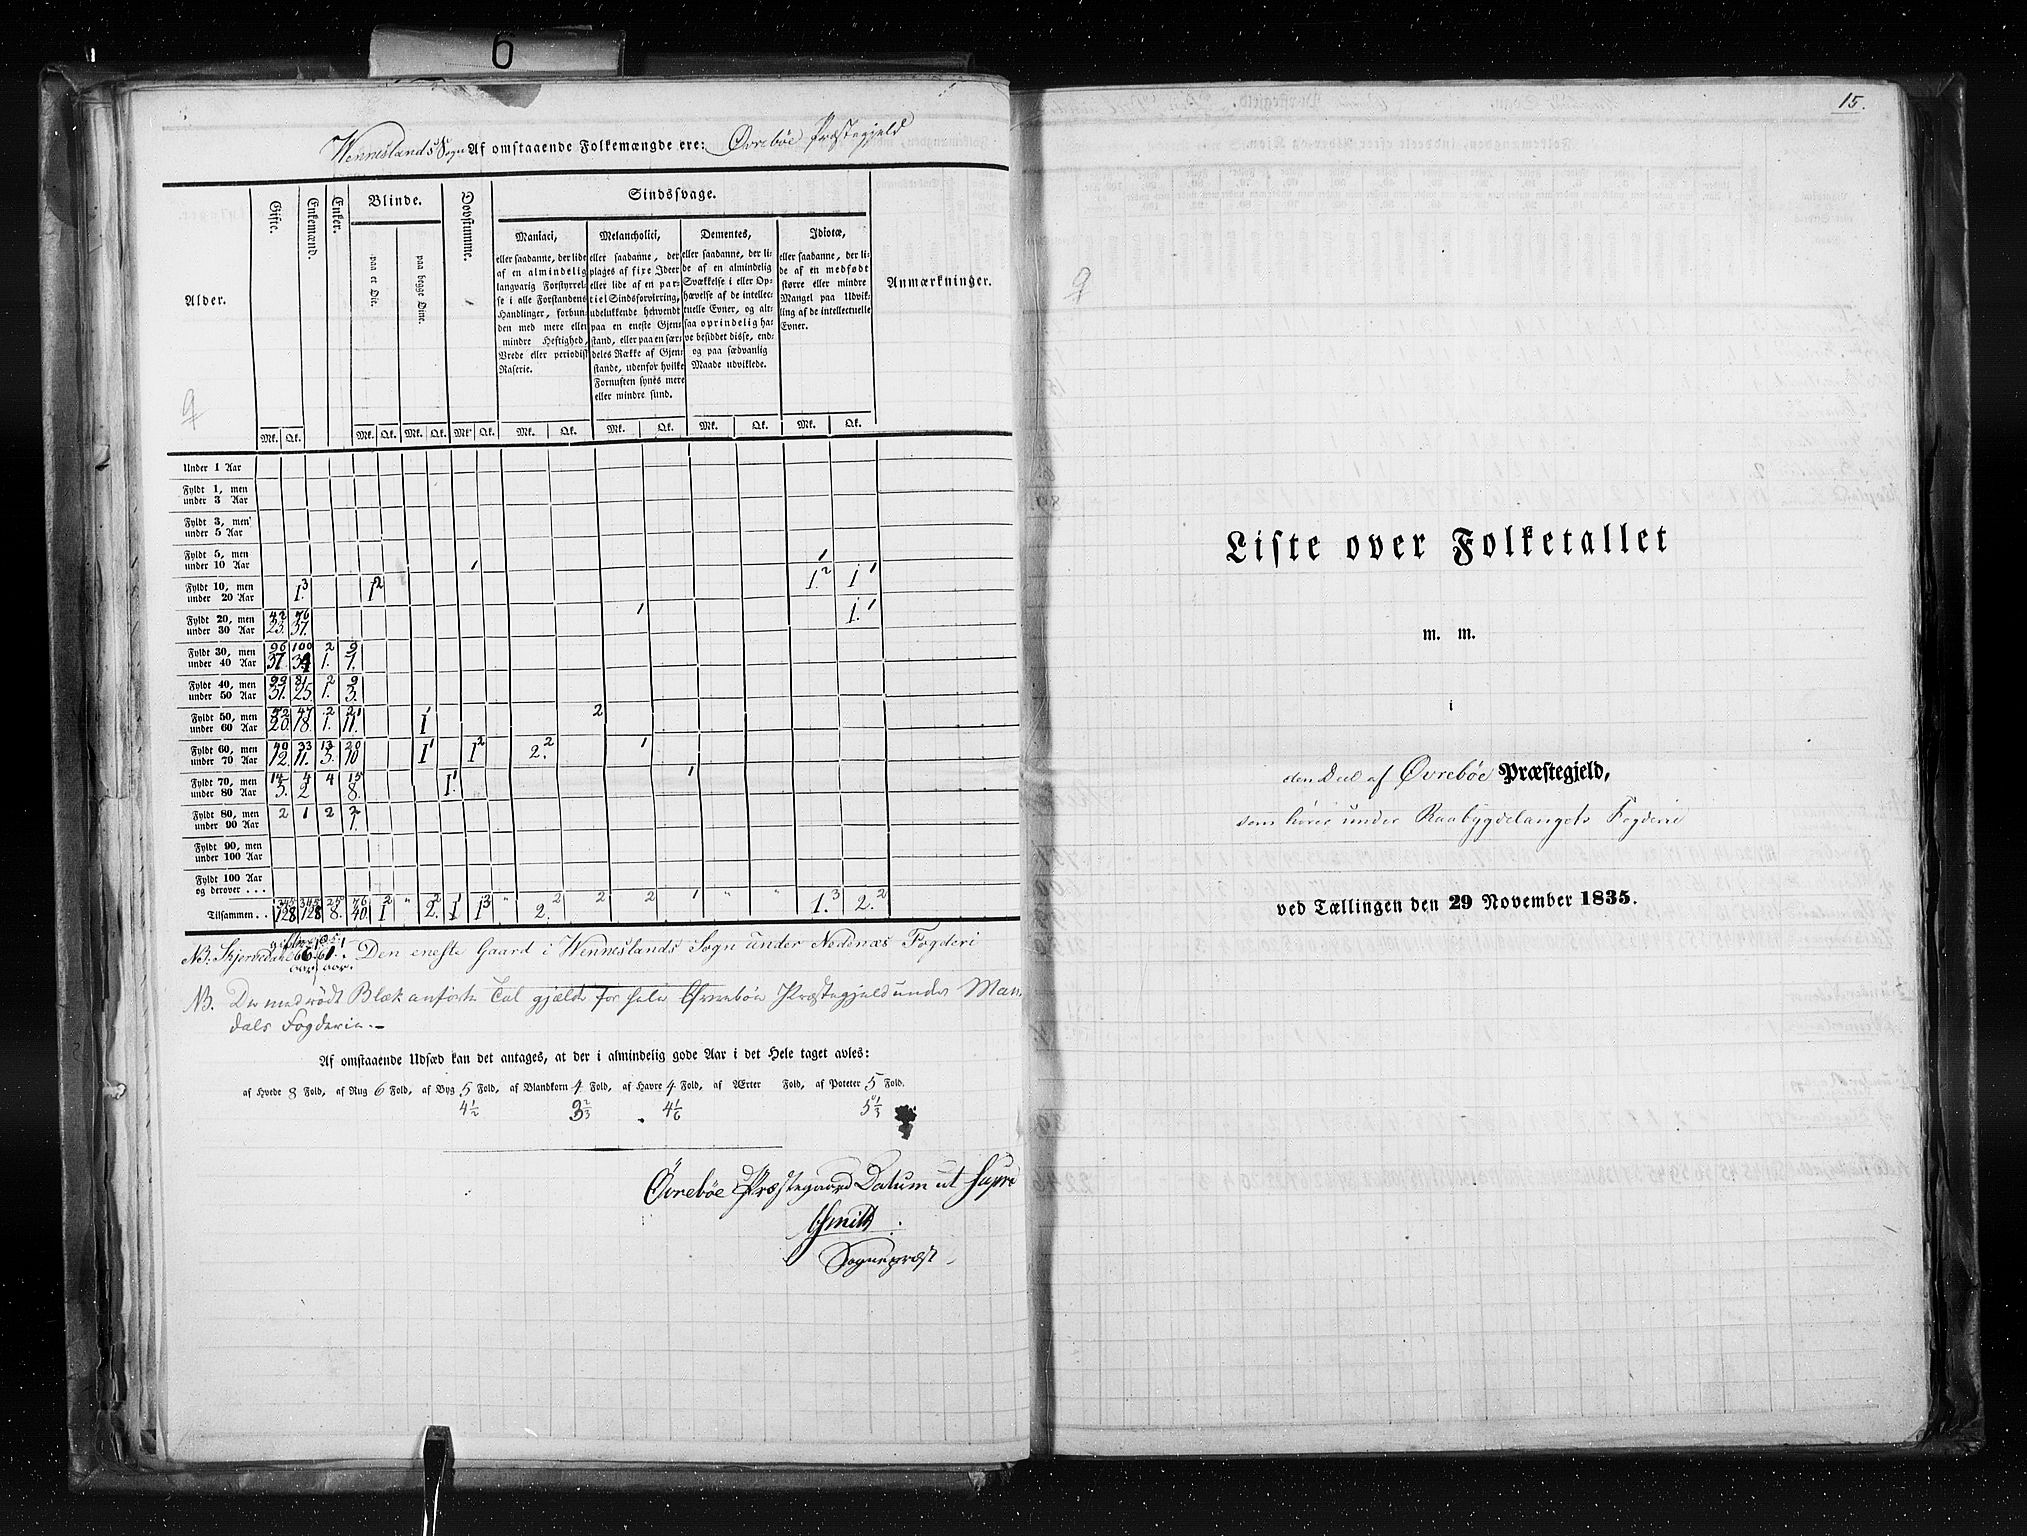 6
Wenneslands Sogn Af omstaaende Folkemængde ere: Øvrebøe Præstegjeld
Alder.
Gifte.
Enkemænd.
Enker.
Blinde.
paa et Øie.
paa begge Øine.
Døvstumme.
Sindssvage.
Maniaci,
eller saadanne, der lide
af en almindelig
langvarig Forstyrrel-
se i alle Forstandens
Handlinger, forbun-
den med mere eller
mindre Heftighed,
Vrede eller periodisk
Raserie.
Melancholici,
eller saadanne, der
plages af fixe Ideer
eller lide af en par-
tiel Sindsforvirring,
udelukkende henvendt
paa en eneste Gjen-
stand, eller paa en sær-
deles Række af Gjen-
stande, udenfor hvilke
Fornuften synes mere
eller mindre sund.
Dementes,
eller saadanne, der li-
de af en almindelig
Svækkelse i eller Op-
hævelse af de intellec-
tuelle Evner, og alt-
saa oprindelig ha-
ve besiddet disse, end-
og paa sædvanlig
Maade udviklede.
Idiotæ,
eller saadanne, der li-
de af en medfødt
større eller mindre
Mangel paa Udvik-
ling af de intellectuelle
Evner.
Anmærkninger.
Mk. Qk. Mk. Qk. Mk. Qk. Mk. Qk. Mk. Qk. Mk. Qk. Mk. Qk. Mk. Qk.
Under 1 Aar
Fyldt 1, men
under 3 Aar
Fyldt 3, men
under 5 Aar
Fyldt 5, men
under 10 Aar 1 1
Fyldt 10, men
under 20 Aar 1. 3 1 2 1. 2 1 1
Fyldt 20, men 42 76
under 30 Aar 23. 37. 1 1. 1
Fyldt 30, men 96 100 2 9
under 40 Aar 37. 34 1. 7.
Fyldt 40, men 99 81 2 9
under 50 Aar 31. 25. 1. 3.
Fyldt 50, men 52 47 2 21
under 60 Aar 20. 18. 1. 11. 1 1 2
Fyldt 60, men 40 33 13 20
under 70 Aar 12. 11. 5. 10 1 1 1 2 2. 2 1
Fyldt 70, men 14 4 4 15
under 80 Aar 5. 2 8. 1. 1 1
Fyldt 80, men 2 1 2 2
under 90 Aar 1.
Fyldt 90, men
under 100 Aar
Fyldt 100 Aar
og derover . . .
Tilsammen . . 345 345 25 76
128 128 8. 40 1 2 " 2. 2 1 1 1 3 " 2. 2 2 2 1 " " 1. 3 2. 2
NB: Skjervedal Den eneste Gaard i Wenneslands Sogn under Nedenæs Fogderi
NB. De med rødt Blæk anførte Tal gjælde for hele Øvrebøe Præstegjeld under Man-
dals Fogderie.
Af omstaaende Udsæd kan det antages, at der i almindelig gode Aar i det Hele taget avles:
af Hvede 8 Fold, af Rug 6 Fold, af Byg 5 Fold, af Blandkorn 4 Fold, af Havre 4 Fold, af Ærter Fold, af Poteter 5 Fold.
4 1/2 3 2/3 4 1/6 5 1/3
Øvrebøe Præstegaard Datum ut supra
Smith.
Sognepræst
15.
Liste over Folketallet
m. m.
i
den Deel af Øvrebøe Præstegjeld,
som hører under Raabygdelagets Fogderie
ved Tællingen den 29 November 1835.